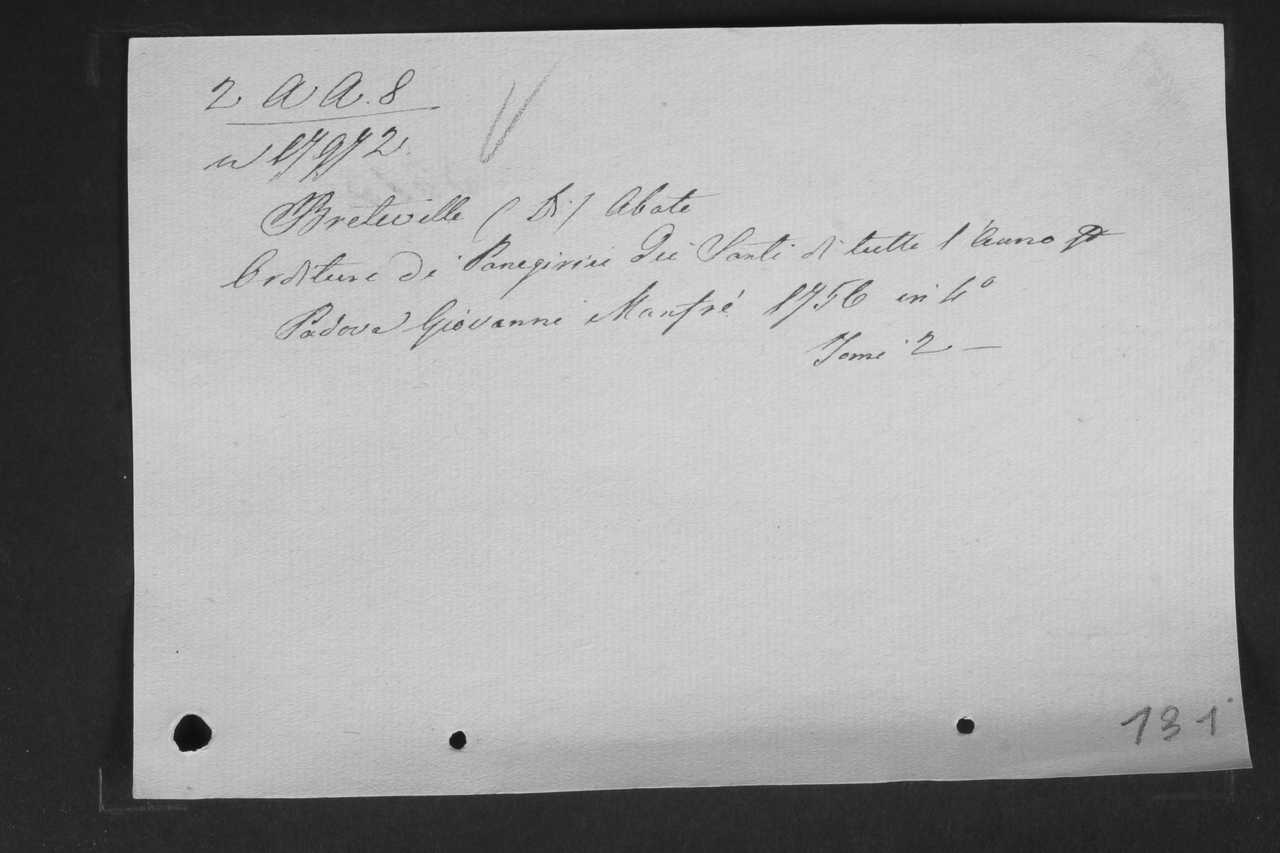 2 A A. 8
n 17972
Breteville (Di) Abate
Orditure di Panegirici Dei Santi di tutto l'Anno
Padova Giovanni Manfré 1756 in 4°
Tomi 2 —
131